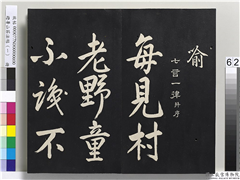 喻
七言一律并序
每見村
老野童
不識不
62